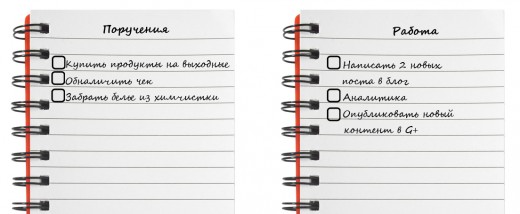 Поручения
Купить продукты на выходные
Обналичить чек
Забрать белье из химчистки
Работа
Написать 2 новых
поста в блог
Аналитика
Опубликовать новый
контент в G+